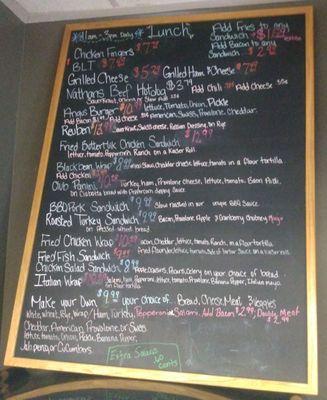 11am - 3pm Daily Lunch
Add Fries to any
Sandwich
Add Bacon to any
Sandwich $2.99
Chicken Fingers $7.99
BLT $7.99
Grilled Cheese $5.29 Grilled Ham & Cheese $7.99
Nathans Beef Hotdog $3.79 Add Chili Add Cheese
Sauerkraut, onion or Slaw
Angus Burger lettuce, Tomato, Onion, Pickle
Add Bacon Add cheese American, Swiss, Provolone, Cheddar
Reuben Sauerkraut, Swiss cheese, Russian Dressing, on Rye
Fried Buttermilk Chicken Sandwich
lettuce, tomato, Ranch, on a Kaiser Roll
Blackbean Wrap cheddar cheese, lettuce, tomato in a flour tortilla
Add Chicken
Club Panini Turkey, ham, Provolone cheese, lettuce, tomato, Bacon, Basil,
on Ciabatta bread with dipping sauce
BBQ Pork Sandwich $9.99 Slow roasted in our unique BBQ Sauce
Roasted Turkey Sandwich $9.99 Bacon, Provolone, Apple & Cranberry Chutney Mayo
on wheat bread
Fried Chicken Wrap $10.99 bacon, Cheddar, lettuce, tomato, Ranch, in a flour tortilla
Fried Fish Sandwich lettuce, tomato, side of tartar sauce on a
Chicken Salad Sandwich Apple, Raisins, Pecans, Celery on your choice of bread
Italian Wrap Salami, ham, Pepperoni, lettuce, tomato, Provolone, Banana Pepper, Italian mayo
on flour tortilla
Make your Own $9.99 your choice of: Bread, Cheese, Meat, 3 Veggies
White, wheat, Rye, Wrap / Ham, Turkey, Pepperoni, Salami, Add Bacon $2.99, Double Meat
$2.99
Cheddar, American, Provolone or Swiss
lettuce, tomato, Onion, Pickle, Banana Pepper,
Jalapenos, or Cucumbers
Extra Sauces
60 cents